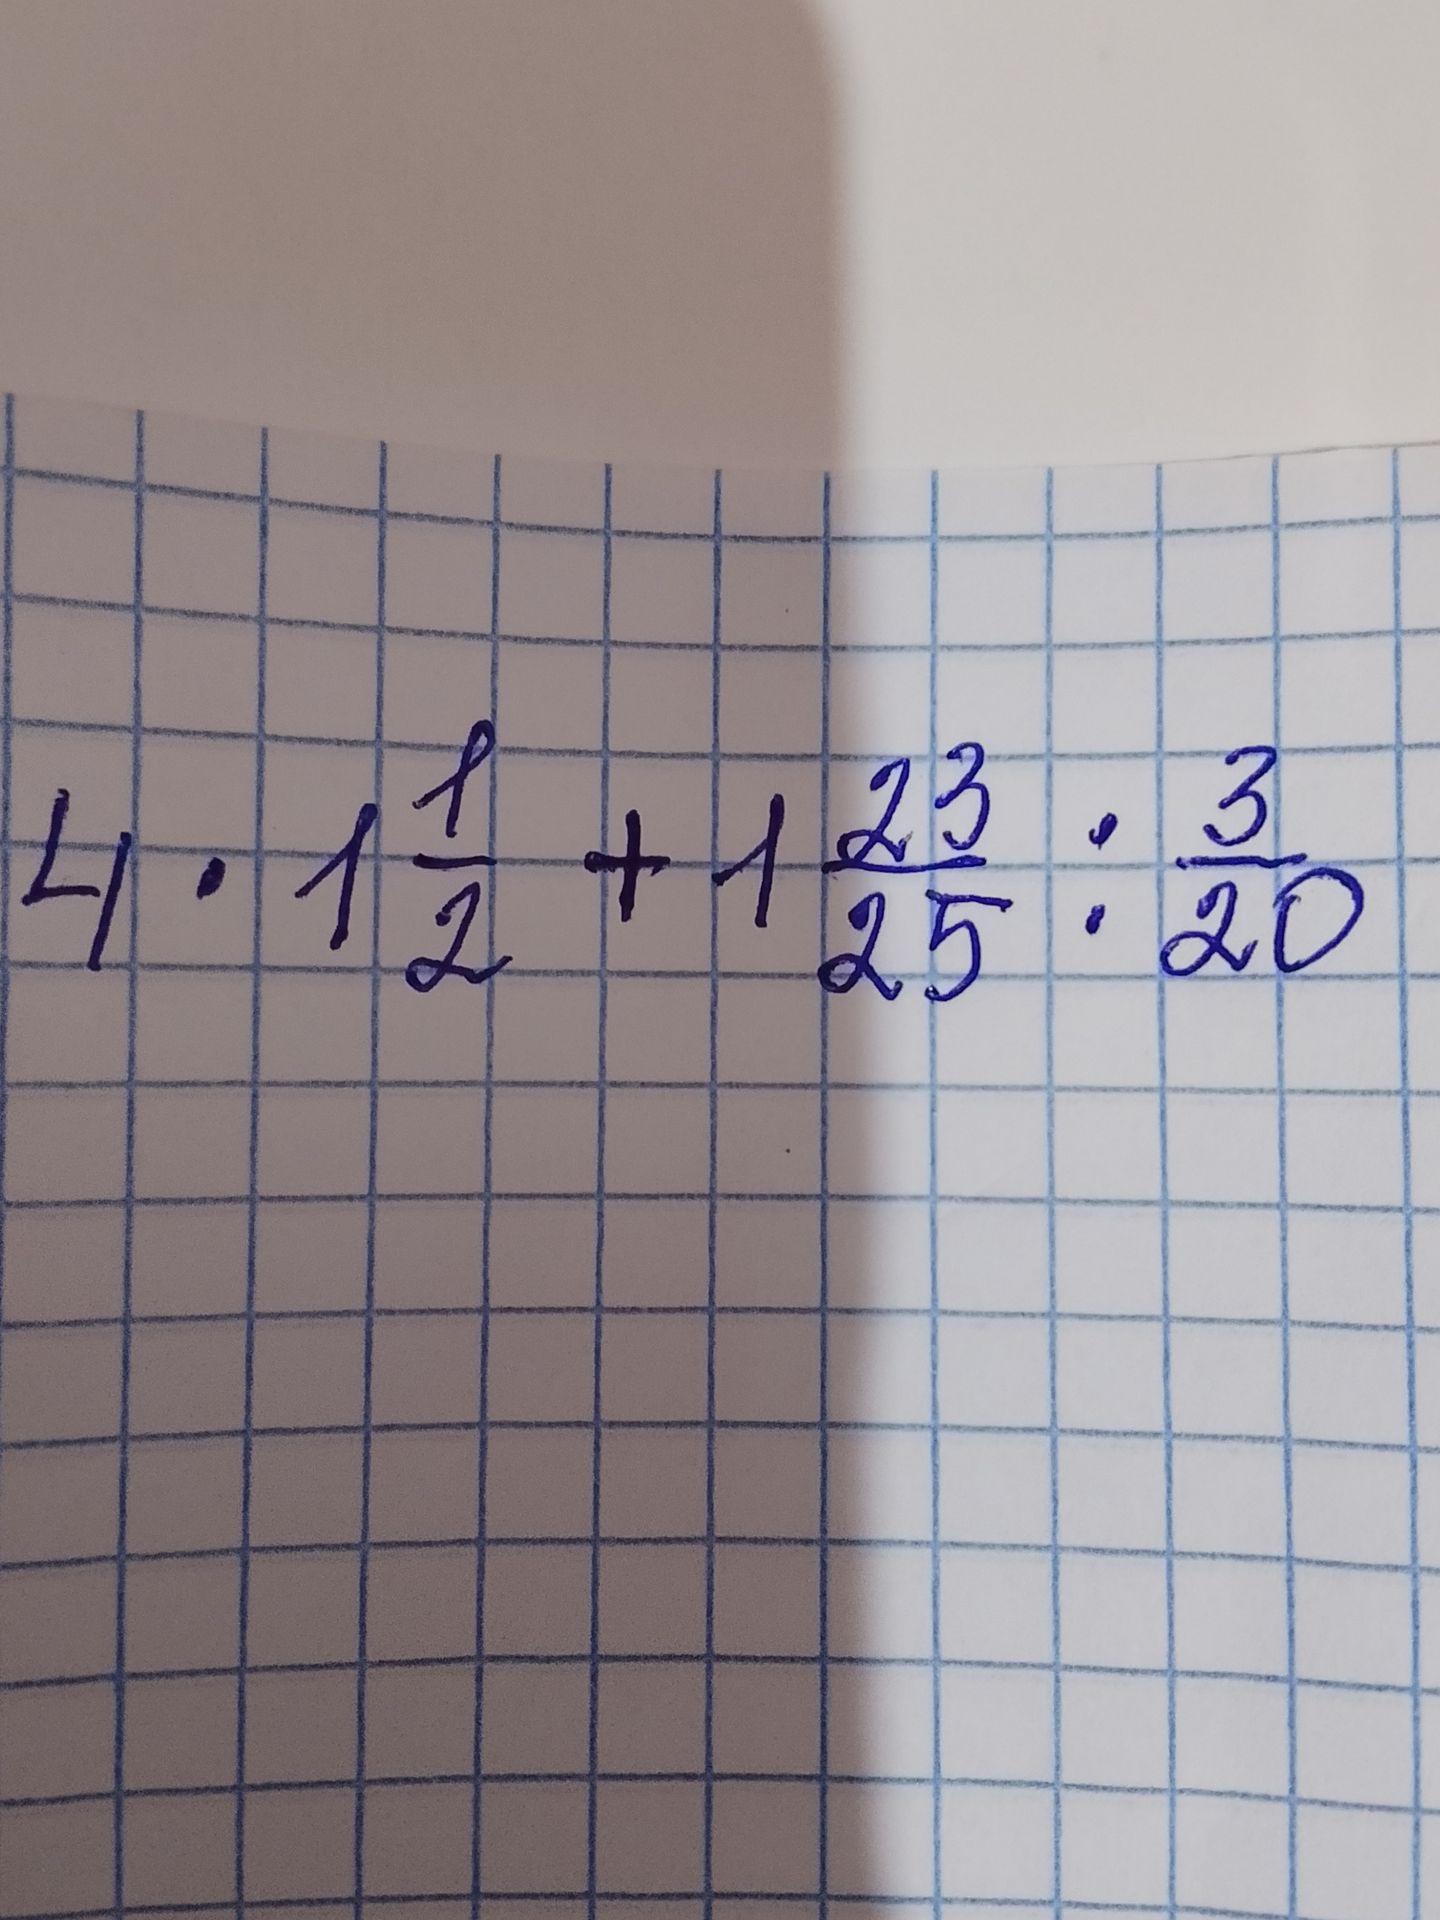 4 · 1 1/2 + 1 23/25 : 3/20